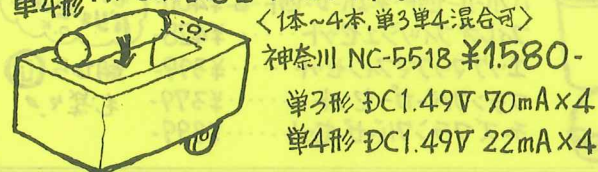 単4形
〈1本~4本,単3単4混合可〉
神奈川 NC-5518 ¥1.580-
単3形 DC1.49V 70mA×4
単4形 DC1.49V 22mA×4